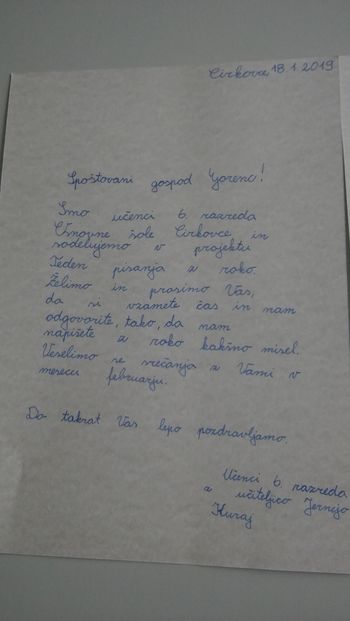 Cirkovce, 18.1.2019
Spoštovani gospod Gorenc!
Smo učenci 6. razreda
Osnovne šole Cirkovce in
sodelujemo v projektu
Teden pisanja z roko.
Želimo in prosimo Vas,
da si vzamete čas in nam
odgovorite, tako, da nam
napišete z roko kakšno misel.
Veselimo se srečanja z Vami v
mesecu februarju.
Do takrat Vas lepo pozdravljamo.
Učenci 6. razreda
z učiteljico Jernejo